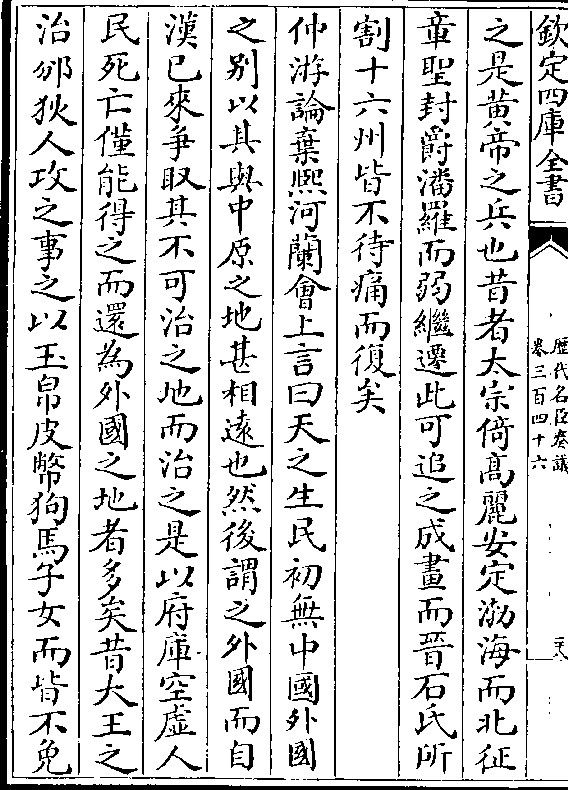 欽定四庫全書
歴代名臣奏議
卷三百四十六
之是黄帝之兵也昔者太宗倚髙麗安定渤海而北征
章聖封爵潘羅而弱繼遷此可追之成畫而晉石氏所
割十六州皆不待痛而復矣
仲游論棄熈河蘭會上言曰天之生民初無中國外國
之别以其與中原之地甚相逺也然後謂之外國而自
漢已來爭取其不可治之地而治之是以府庫空虚人
民死亡僅能得之而還為外國之地者多矣昔大王之
治邠狄人攻之事之以玉帛皮幣狗馬子女而皆不免